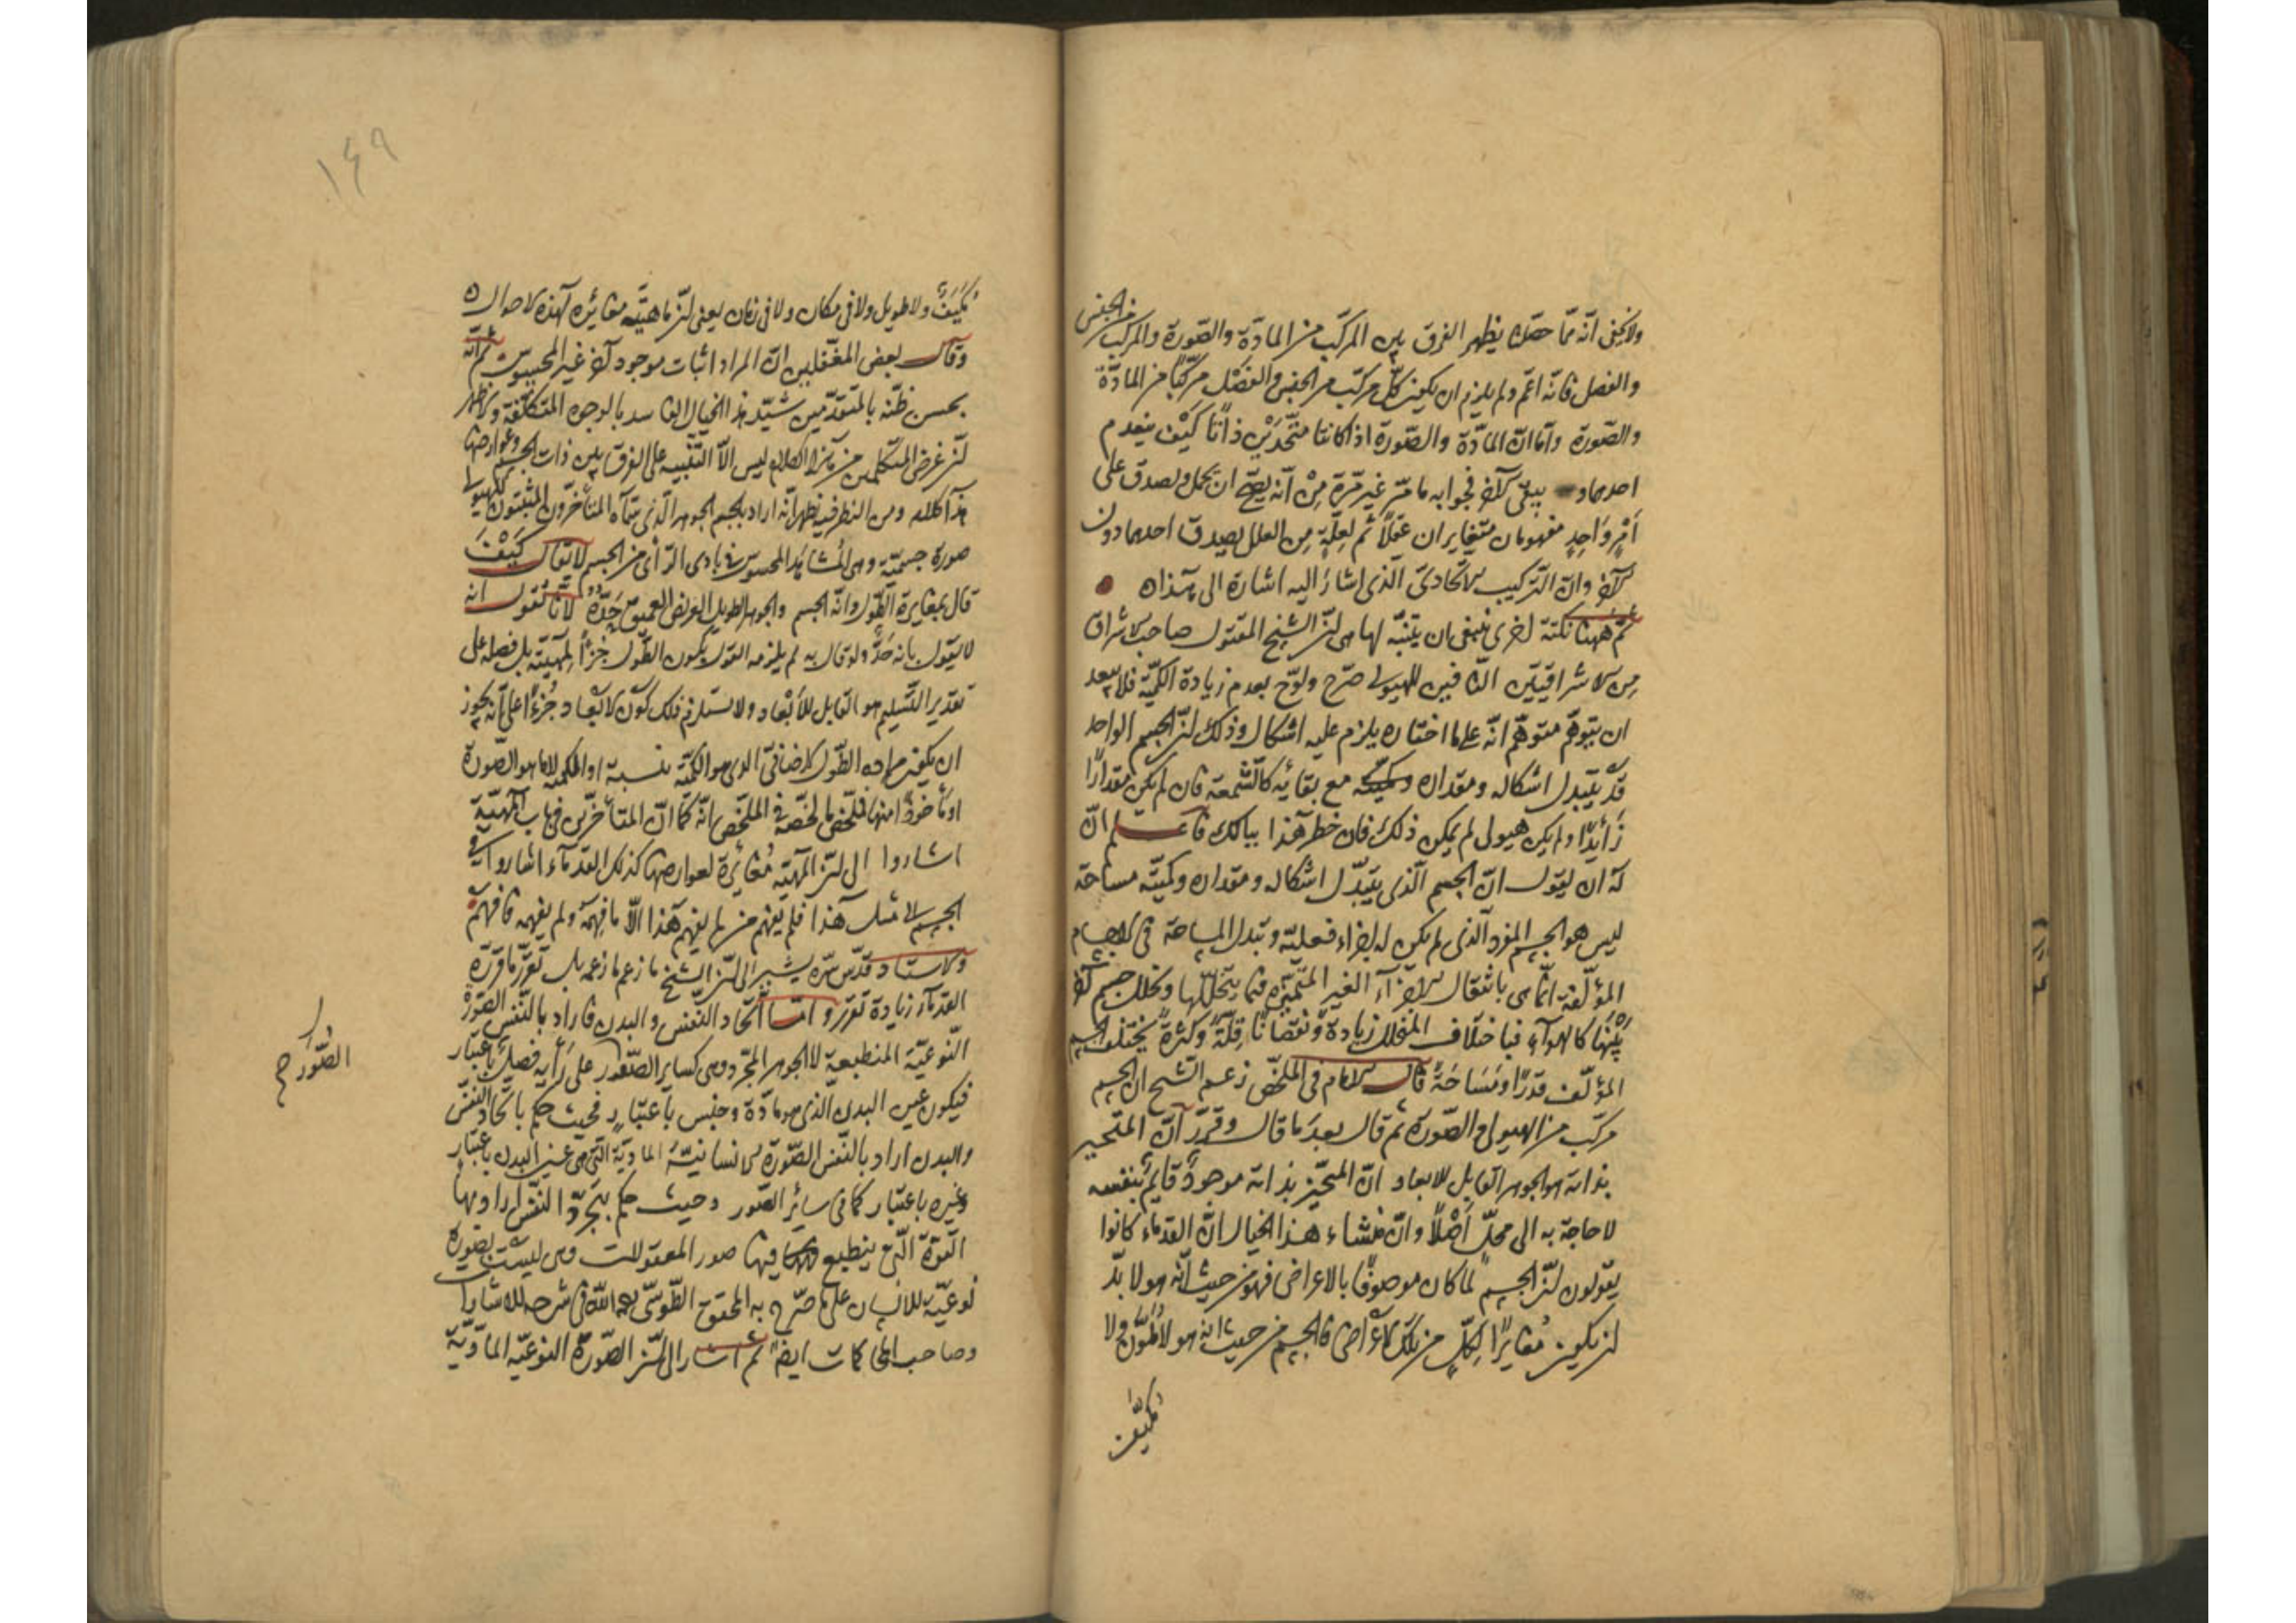 ولا يخفى انه مما حققنا يظهر الفرق بين المركب من المادة والصورة والمركب من الجنس
والفصل فانه اعم ولم يلزم ان يكون كل مركب من الجنس والفصل مركبا من المادة
والصورة واما ان المادة والصورة اذا كانتا متحدتين ذاتا كيف ينعدم
احدهما و يبقى الآخر فجوابه ما مر غير مرة من انه يصح ان يحمل ويصدق على
امر واحد مفهومان متغايران عقلا ثم لعلة من العلل يصدق احدهما دون
الآخر وان التركيب الاتحادى الذى اشار اليه اشارة الى هذا
ثم ههنا نكتة اخرى ينبغى ان يتنبه لها هى ان الشيخ المقتول صاحب الاشراق
من الاشراقيين النافين للهيولى صرح ولوح بعدم زيادة الكمية فلا يبعد
ان يتوهم متوهم انه على ما اختاره يلزم عليه اشكال وذلك ان الجسم الواحد
قد يتبدل اشكاله ومقداره وكميته مع بقائه كالشمعة فان لم يكن مقدارا
زايدا ولم يكن هيولى لم يمكن ذلك فان خطر هذا ببالك فاعلم ان
له ان يقول ان الجسم الذى يتبدل اشكاله ومقداره وكميته مساحة
ليس هو الجسم المفرد الذى لم يكن له اجزاء فعلية وتبدل المساحة فى الاجسام
المؤلفة انما هى بانتقال الاجزاء الغير المتميزه فيما يتخللها وتخلل جسم آخر
بينها كالهواء فباختلاف المتخلل زيادة ونقصانا قلة وكثرة يختلف الجسم
المؤلف قدرا ومساحة قال الامام فى الملخص زعم الشيخ ان الجسم
مركب من الهيولى والصورة ثم قال بعد ما قال وقرر ان المتحيز
بذاته هو الجوهر القابل للابعاد ان المتحيز بذاته موجود قايم بنفسه
لا حاجة به الى محل اصلا وان منشاء هذا الخيال ان القدماء كانوا
يقولون ان الجسم لما كان موصوفا بالاعراض فهو من حيث انه هو لا بد
ان يكون مغايرا لكل من تلك الاعراض فالجسم من حيث انه هو لا ملون ولا
مكيف
١٤٩
مكيف ولا طويل ولا فى مكان ولا فى زمان يعنى ان ماهيته مغائره لهذه الاحوال
وقال بعض المغفلين ان المراد اثبات موجود آخر غير المحسوس ثم انه
بحسن ظنه بالمتقدمين شيد هذا الخيال الفاسد بالوجوه المتكلفة ولا يظهر
ان غرض المتكلمين من هذا الكلام ليس الا التنبيه على الفرق بين ذات الجسم وعوارضها
هذا كلامه ومن النظر فيه يظهر انه اراد بالجسم الجوهر الذى سماه المتأخرون المثبتون للهيولى
صورة جسمية وهى المشاهد المحسوس فى بادى الرأى من الجسم لا يقال كيف
قال بمغايرة الطول وانه الجسم والجوهر الطويل العريض العميق حده لانا نقول انه
لا يقول بانه حد ولو قال به لم يلزمه القول بكون الطول جزأ لمهيته بل فصله على
تقدير التسليم هو القابل للأبعاد ولا يستلزم ذلك كون الابعاد جزءا على انه يجوز
ان يكون مراده الطول الاضافى الذى هو الكمية بنسبة او الكمية لا ما هو الصورة
او مأخوذ منها فملخص ما لخصه فى الملخص انه كما ان المتأخرين فى باب المهية
اشاروا الى ان المهية مغائرة لعوارضها كذلك القدماء اشاروا فى
الجسم الى مثل هذا فلم يفهم من لم يفهم هذا الا ما فهمه ولم يفهمه فافهم
والاستاد قدس سره يشير الى ان الشيخ ما زعم ما زعمه بل تقرر ما قرره
القدماء زيادة تقرر واما اتحاد النفس والبدن فاراد بالنفس الصورة
النوعية المنطبعة لا الجوهر المجرد وهى كساير الصور على رأيه فصل باعتبار
فيكون عين البدن الذى هو مادة وجنس باعتبار فحيث حكم باتحاد النفس
والبدن اراد بالنفس الصورة الانسانية المادية التى هى عين البدن باعتبار
وغيره باعتبار كما فى سائر الصور وحيث حكم بتجرد النفس اراد بها
القوة التى ينطبع فيها صور المعقولات وهى ليست بصورة
نوعية للانسان على ما صرح به المحقق الطوسى رحمه الله فى شرحه للاشارات
وصاحب المحاكمات ايضا ثم اشار الى ان الصورة النوعيه المادية
الصور ح